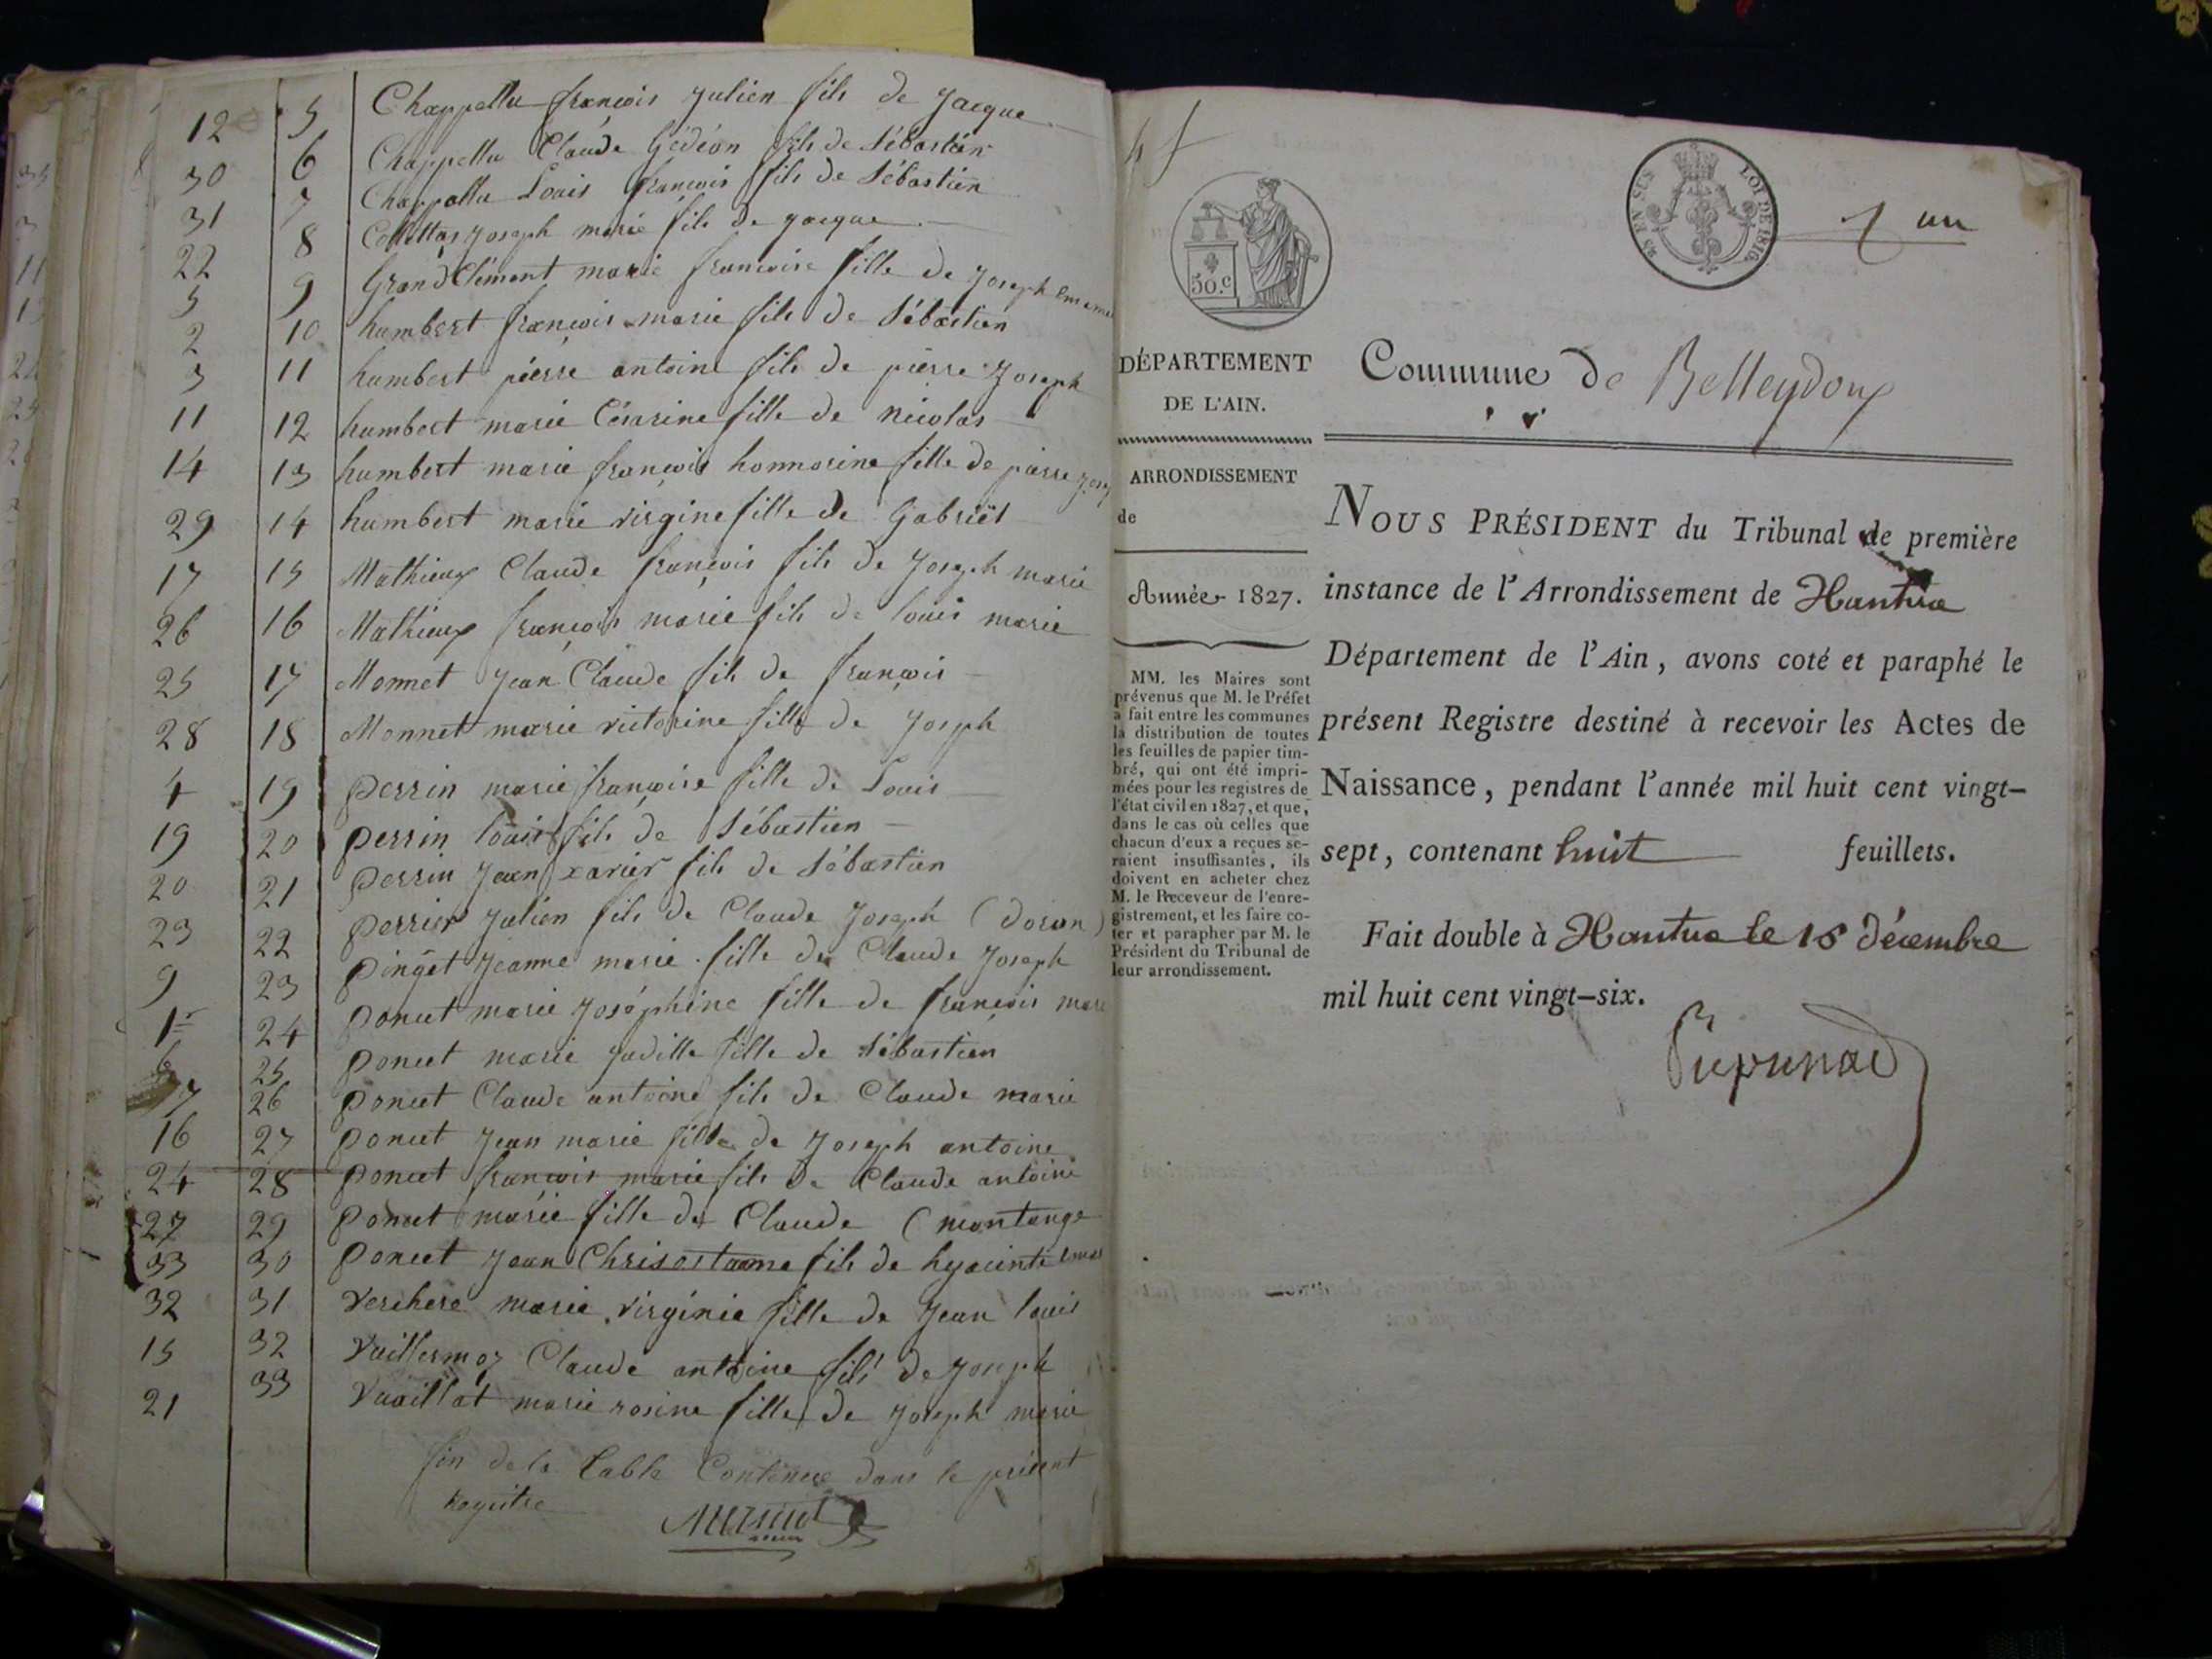 12 5 Chappellu françois Julien fils de Jacque
30 6 Chappellu Claude Gédéon fils de Sébastien
31 7 Chappellu Louis françois fils de Sébastien
22 8 Collettaz Joseph marie fils de Jacque
5 9 GrandClément marie françoise fille de Joseph
2 10 humbert françois marie fils de Sébastien
3 11 humbert pierre antoine fils de pierre Joseph
11 12 humbert marie Césarine fille de nicolas
14 13 humbert marie françois honnorine fille de pierre
29 14 humbert marie virgine fille de Gabriël
17 15 Mathieux Claude françois fils de Joseph marie
26 16 Mathieux françois marie fils de louis marie
25 17 Monnet Jean Claude fils de françois
28 18 Monnet marie victorine fille de Joseph
4 19 perrin marie françoise fille de Louis
19 20 perrin louis fils de Sébastien
20 21 perrin Jean xavier fils de Sébastien
23 22 perrier Julien fils de Claude Joseph (Doran)
9 23 pinget Jeanne marie fille de Claude Joseph
1er 24 poncet marie Joséphine fille de françois marie
6 25 poncet marie Judille fille de Sébastien
7 26 poncet Claude antoine fils de Claude marie
16 27 poncet Jean marie fille de Joseph antoine
24 28 poncet françois marie fils de Claude antoine
27 29 poncet marie fille de Claude (montange
33 30 poncet Jean Chrisostaome fils de hyacinte
32 31 verchere marie virginie fille de Jean louis
15 32 Vuillermoz Claude antoine fils de Joseph
21 33 Vuaillat marie rosine fille de Joseph marie
fin de la table Contenue dans le présent
Registre
50.c
25 EN SUS
LOI DE 1816.
un
DÉPARTEMENT
DE L'AIN.
ARRONDISSEMENT
de
Année 1827.
MM. les Maires sont
prévenus que M. le Préfet
a fait entre les communes
la distribution de toutes
les feuilles de papier tim-
bré, qui ont été impri-
mées pour les registres de
l'état civil en 1827, et que,
dans le cas où celles que
chacun d'eux a reçues se-
raient insuffisantes, ils
doivent en acheter chez
M. le Receveur de l'enre-
gistrement, et les faire co-
ter et parapher par M. le
Président du Tribunal de
leur arrondissement.
Commune de Belleydoux
NOUS PRÉSIDENT du Tribunal de première
instance de l'Arrondissement de Nantua
Département de l'Ain, avons coté et paraphé le
présent Registre destiné à recevoir les Actes de
Naissance, pendant l'année mil huit cent vingt-
sept, contenant huit feuillets.
Fait double à Nantua le 15 décembre
mil huit cent vingt-six.